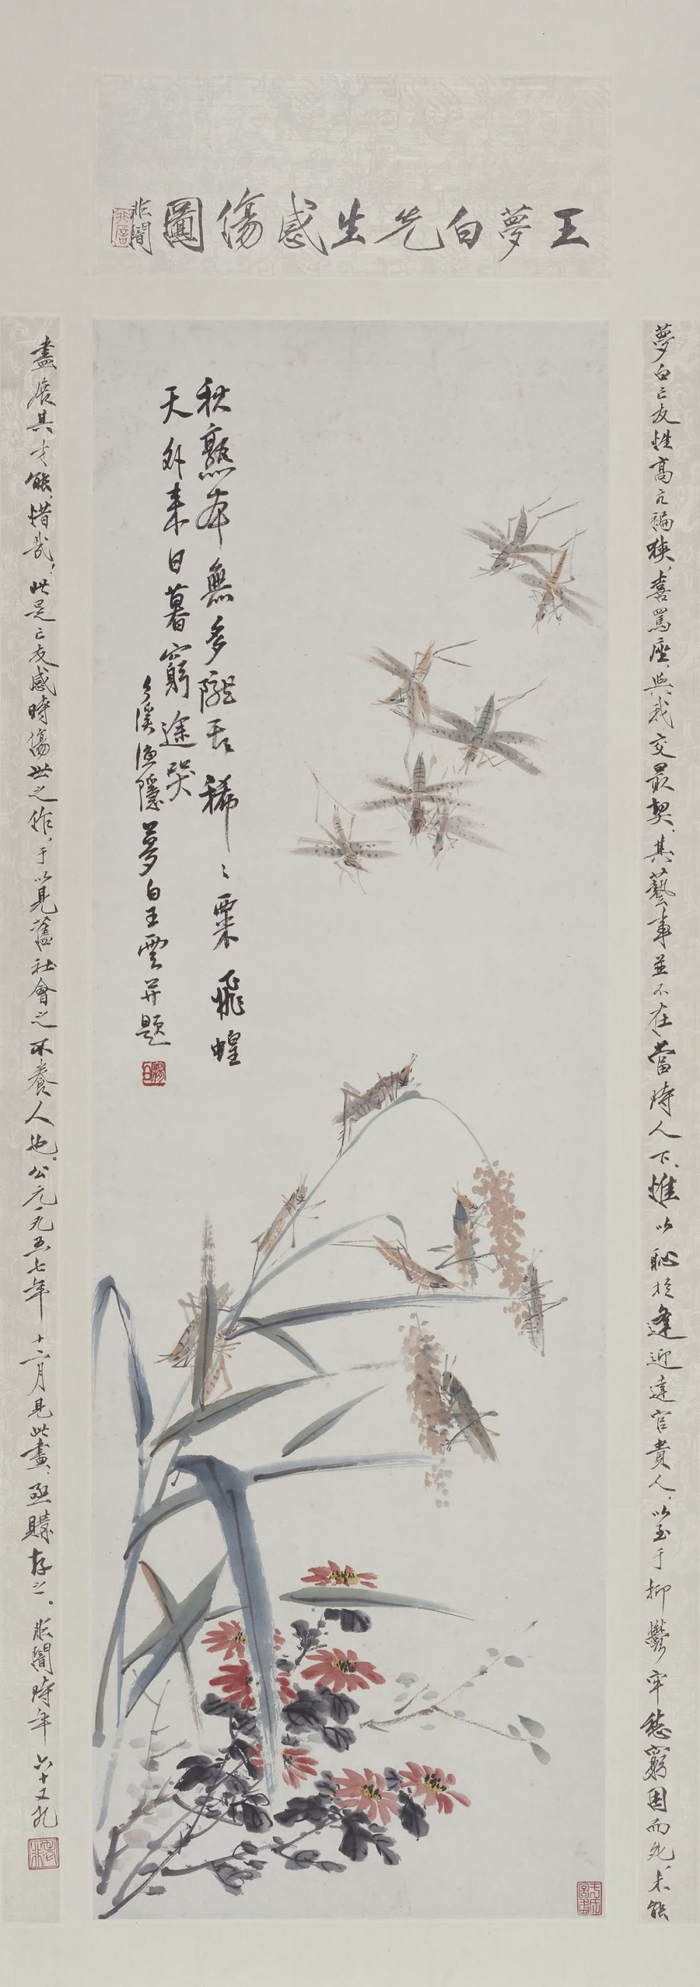 王夢白先生感傷圖
非闇
秋熟本無多隴頭稀稀粟飛蝗
天外來日暮窮途哭
三溪漁隱夢白王雲并題
夢白亡友性高亢褊狹喜罵座與我交最契其藝事並不在當時人下惟以恥於逢迎達官貴人以至于抑鬱牢愁窮困而死未能
盡展其才能惜哉此是亡友感時傷世之作于以見舊社會之不養人也公元一九五七年十二月見此畫亟購存之非闇時年六十又九